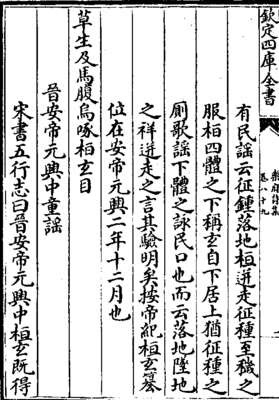 欽定四庫全書
樂府詩集
卷八十九
有民謡云征鍾落地桓迸走征種至穢之
服桓四體之下稱玄自下居上猶征種之
厠歌謡下體之詠民口也而云落地墜地
之祥迸走之言其驗明矣按帝紀桓玄簒
位在安帝元興二年十二月也
草生及馬腹烏啄桓玄目
晉安帝元興中童謡
宋書五行志曰晉安帝元興中桓玄既得